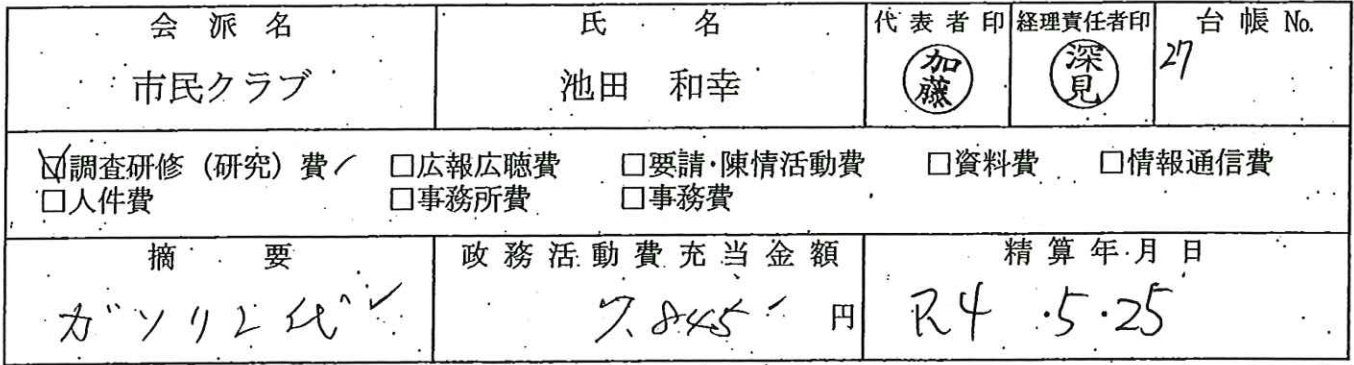 会派名 氏名 代表者印 経理責任者印 台帳No.
市民クラブ 池田 和幸 加藤 深見 27
☑調査研修(研究)費 □広報広聴費 □要請・陳情活動費 □資料費 □情報通信費
□人件費 □事務所費 □事務費
摘要 政務活動費充当金額 精算年月日
ガソリン代 7,845 円 R4.5.25